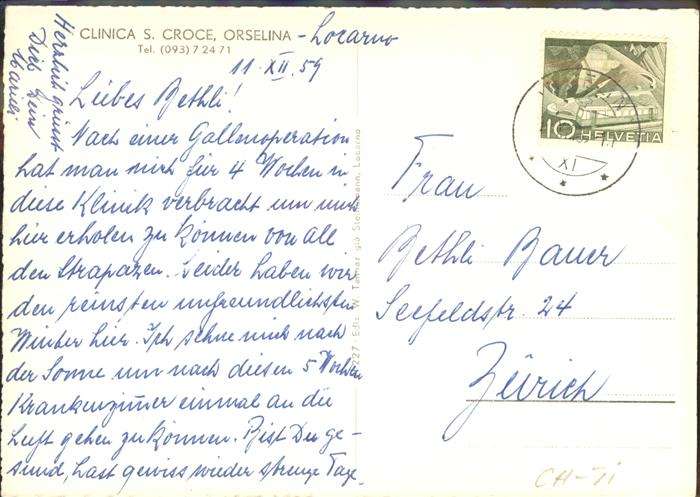 CLINICA S. CROCE, ORSELINA - Locarno
Tel. (093) 7 24 71
11. XII. 59
Liebes Bethli!
Nach einer Gallenoperation
hat man mich für 4 Wochen in
diese Klinik verbracht um mich
hier erholen zu können von all
den Strapazen. Leider haben wir
den reinsten unfreundlichsten
Winter hier. Ich sehne mich nach
der Sonne um nach diesen 5 Wochen
Krankenzimmer einmal an die
Luft gehen zu können. Bist Du ge-
sund, hast gewiss wieder strenge Tage.
Herzlich grüsst
Dich Dein
227 Edit. W. Gio Locarno
10 HELVETIA
XI
Frau
Bethli Bauer
Seefeldstr. 24
Zürich
CH-Ti